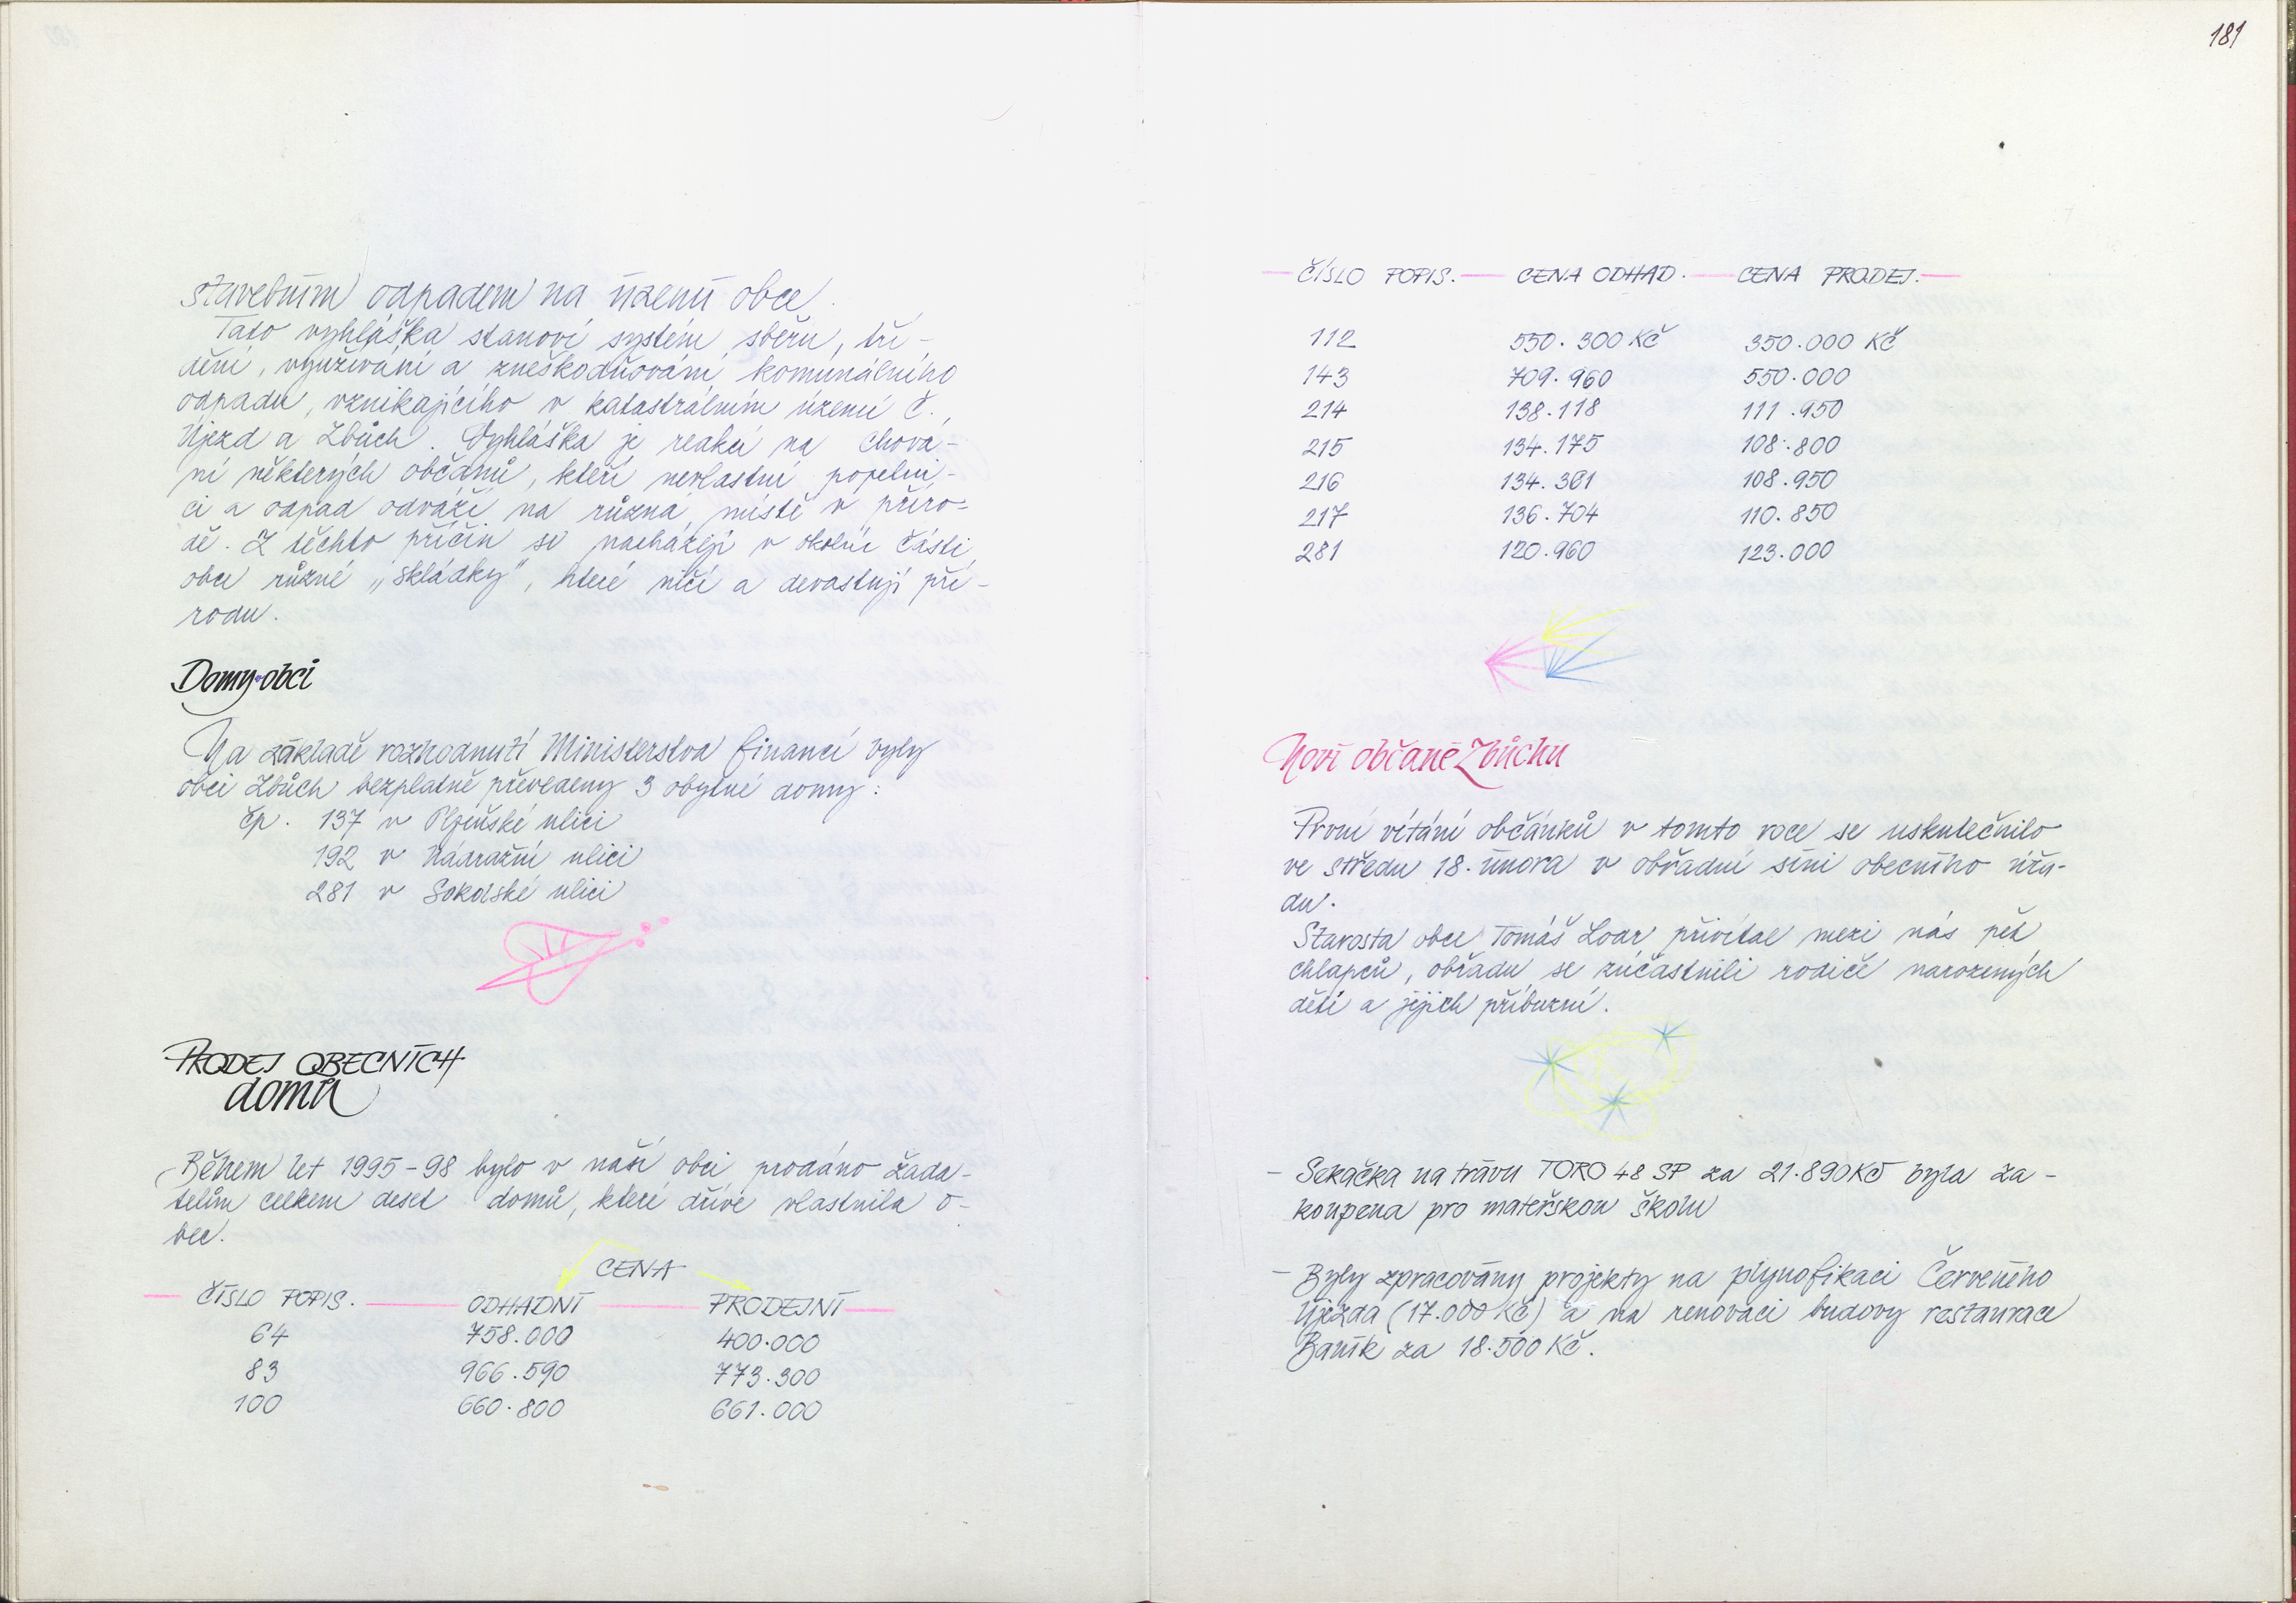 stavebním odpadem na území obce.
Tato vyhláška stanoví systém sběru, tří-
dění, využívání a zneškodňování komunálního
odpadu, vznikajícího v katastrálním území Č.
Újezd a Zbůch. Vyhláška je reakcí na chová-
ní některých občanů, kteří nevlastní popelni-
ci a odpad odváží na různá místě v příro-
dě. Z těchto příčin se nacházejí v okolní části
obce různé „skládky", které ničí a devastují pří-
rodu.
Domy obci
Na základě rozhodnutí Ministerstva financí byly
obci Zbůch bezplatně převedeny 3 obytné domy:
čp. 137 v Plzeňské ulici
192 v Nádražní ulici
281 v Sokolské ulici
PRODEJ OBECNÍCH
domů
Během let 1995-98 bylo v naší obci prodáno žada-
telům celkem deset domů, které dříve vlastnila o-
bec.
CENA
ČÍSLO POPIS. ODHADNÍ PRODEJNÍ
64 758.000 400.000
83 966.590 773.300
100 660.800 661.000
181
ČÍSLO POPIS. CENA ODHAD. CENA PRODEJ.
112 550.300 Kč 350.000 Kč
143 709.960 550.000
214 138.118 111.950
215 134.175 108.800
216 134.361 108.950
217 136.704 110.850
281 120.960 123.000
Noví občané Zbůchu
První vítání občánků v tomto roce se uskutečnilo
ve středu 18. února v obřadní síni obecního úřa-
du.
Starosta obce Tomáš Loar přivítal mezi nás pět
chlapců, obřadu se zúčastnili rodiče narozených
dětí a jejich příbuzní.
- Sekačka na trávu TORO 48 SP za 21.890 Kč byla za-
koupena pro mateřskou školu
- Byly zpracovány projekty na plynofikaci Červeného
Újezda (17.000 Kč) a na renovaci budovy restaurace
Baník za 18.500 Kč.